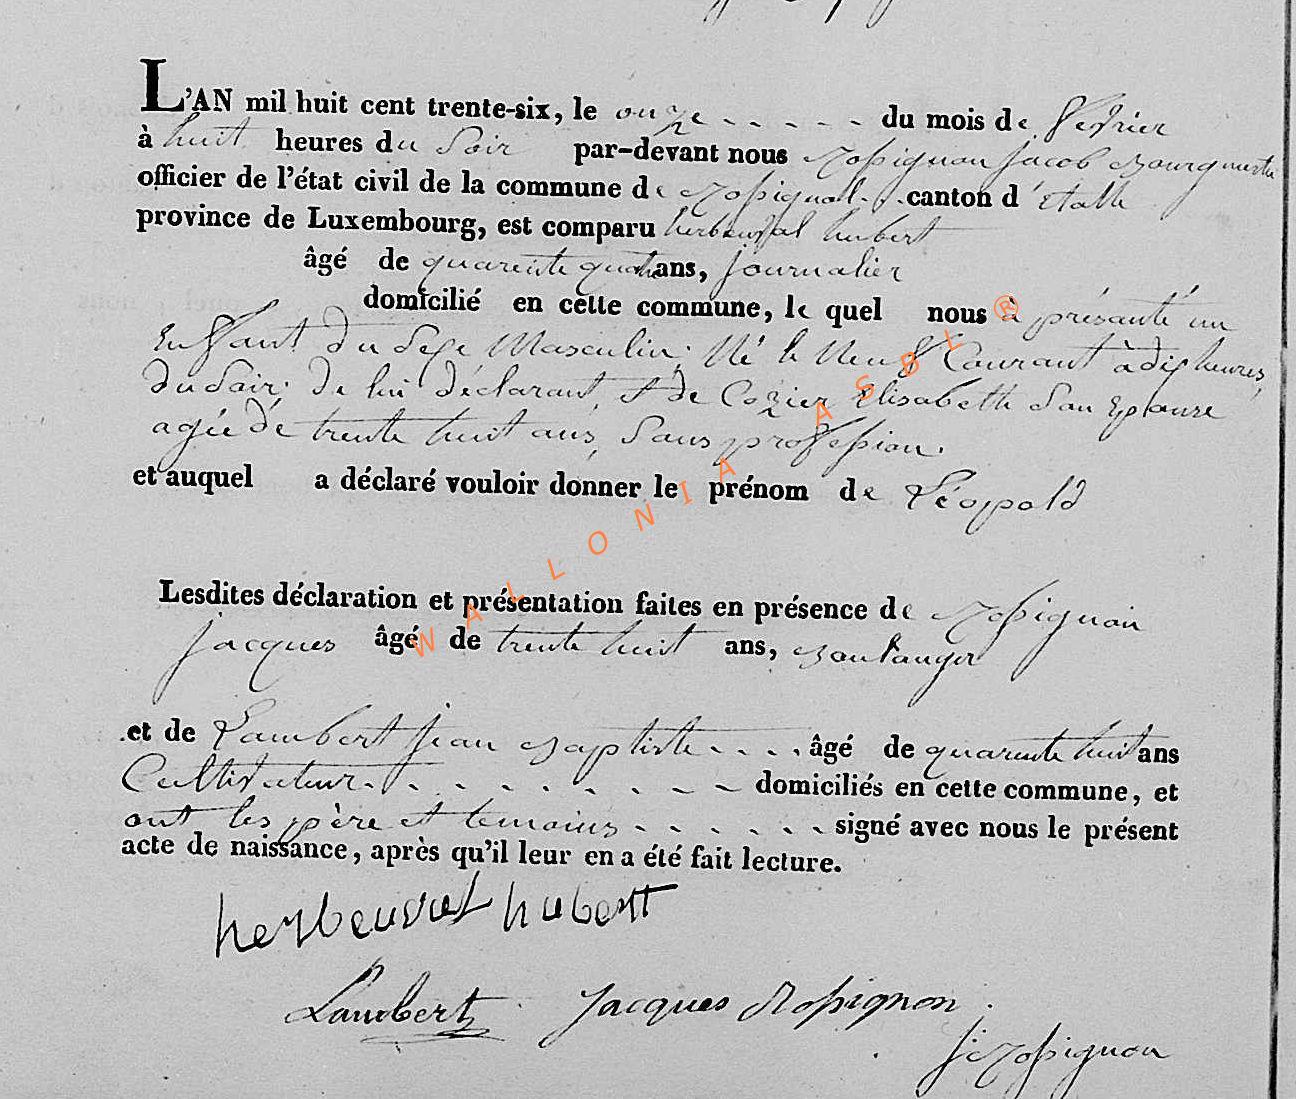 L'AN mil huit cent trente-six, le onze - - - - - du mois de fevrier
à huit heures du Soir par-devant nous Rossignon Jacob Bourgmestre
officier de l'état civil de la commune de Rossignol - - canton d'étalle
province de Luxembourg, est comparu herbeuval hubert
âgé de quarente quatre ans, journalier
domicilié en cette commune, le quel nous à présanté un
Enfant du Sexe Masculin; Né le Neuf Courant à dix heures,
du Soir; de lui déclarant, et de Cozier Elisabeth San Epouse
agée de trente huit ans, Sans profession.
et auquel a déclaré vouloir donner le prénom de Léopold
Lesdites déclaration et présentation faites en présence de Rossignon
Jacques âgé de trente huit ans, Boulanger
et de Lambert Jean Baptiste - - - - âgé de quarente huit ans
Cultivateur - - - - - - - - - domiciliés en cette commune, et
ont les père et temoins - - - - - - signé avec nous le présent
acte de naissance, après qu'il leur en a été fait lecture.
herbeuval hubert
Lambert Jacques Rossignon.
J. Rossignon
WALLONIA ASBL ®